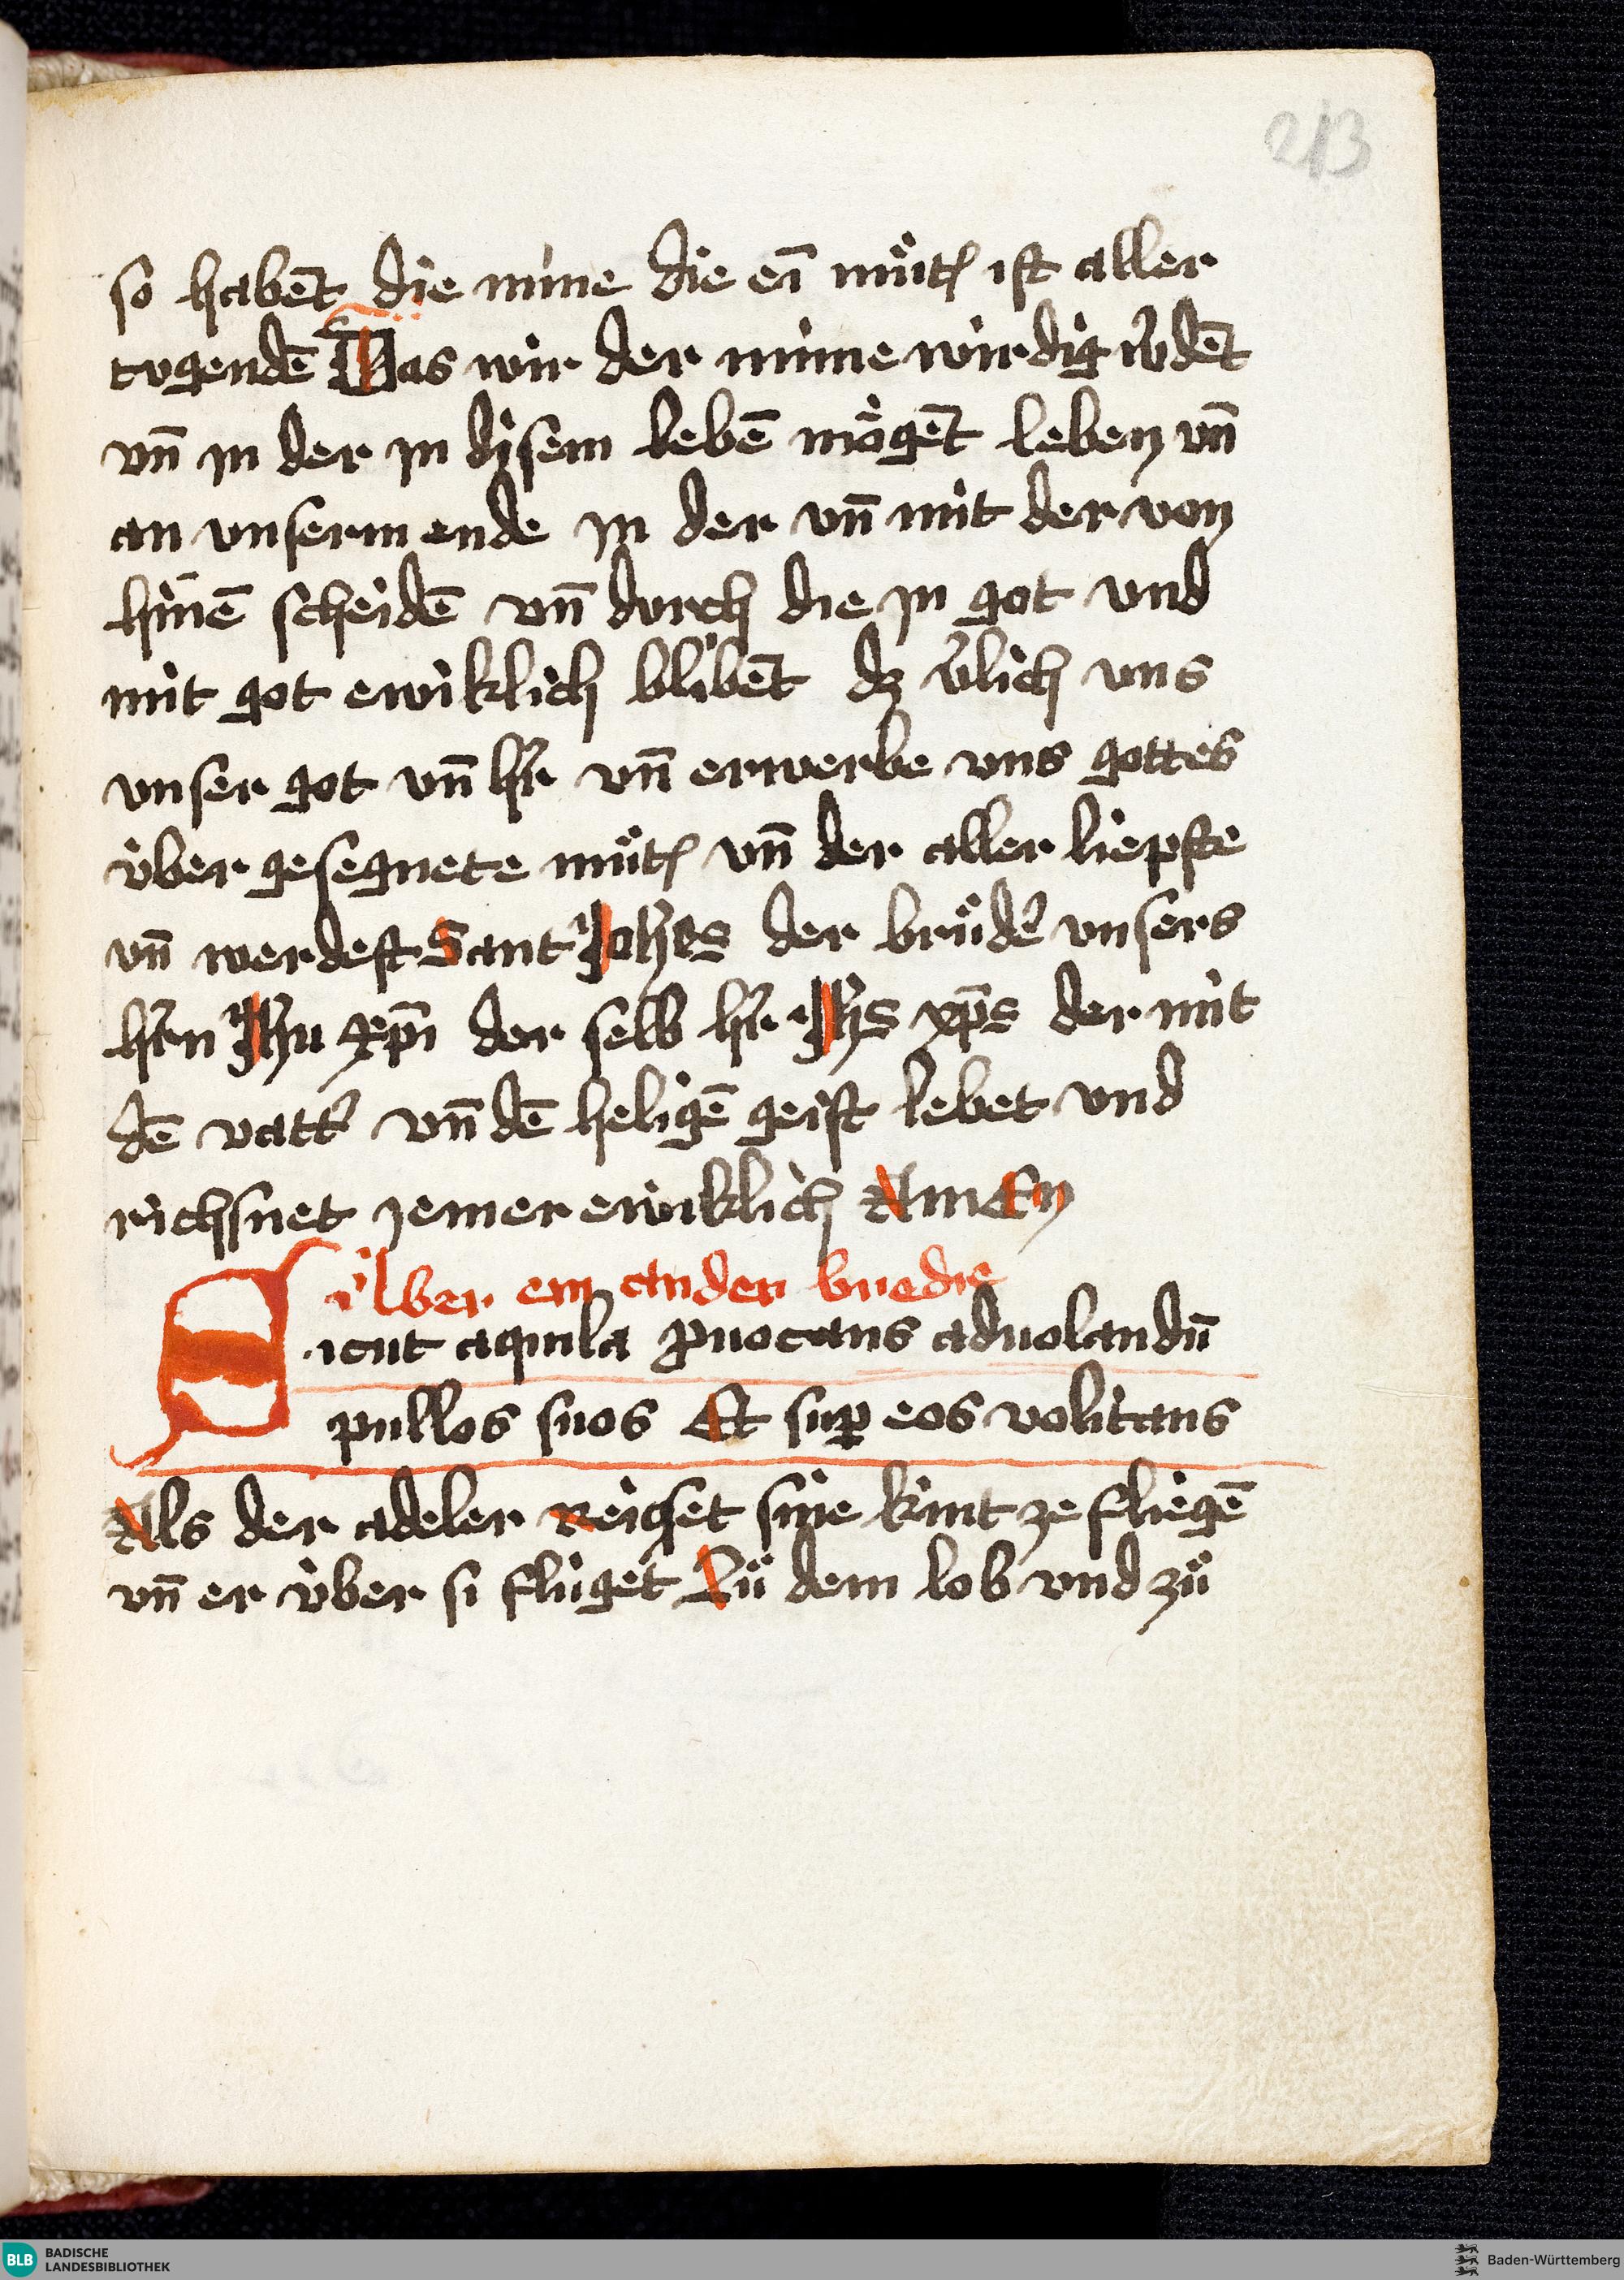 213
so habēt die mīne die eī mu̍tˀ ist aller
tvgendē Das wir der minne wirdig w̓dēt
vn̄ in der in disem lebē mo̍gēt leben vn̄
an vnserm ende in der vn̄ mit der von
hinnē scheidē vn̄ dvrch die in got vnd
mit got ewiklich blibēt dz v̓lich vns
vnser got vn̄ hr̄ vn̄ erwerbe vns gottes
u̍ber gesegnete mu̍tˀ vn̄ der aller liepste
vn̄ werdest Sant Joh̓es der bru̍dˀ vnsers
hr̄n Jh̓u xp̄i der selb hr̄ Jh̓s xp̄s der mit
dē vattˀ vn̄ dē heligē geist lebet vnd
richsnet iemer ewiklich AmEn
v̍lber ein ander bredie
Sicut aquila ꝓuocans aduolandū
pullos suos Et suꝑ eos volitans
Als der adeler Reiget sine kint ze fliegē
vn̄ er u̍ber si flúget Zu̍ dem lob vnd zu̍
BLB BADISCHE
LANDESBIBLIOTHEK
Baden-Württemberg